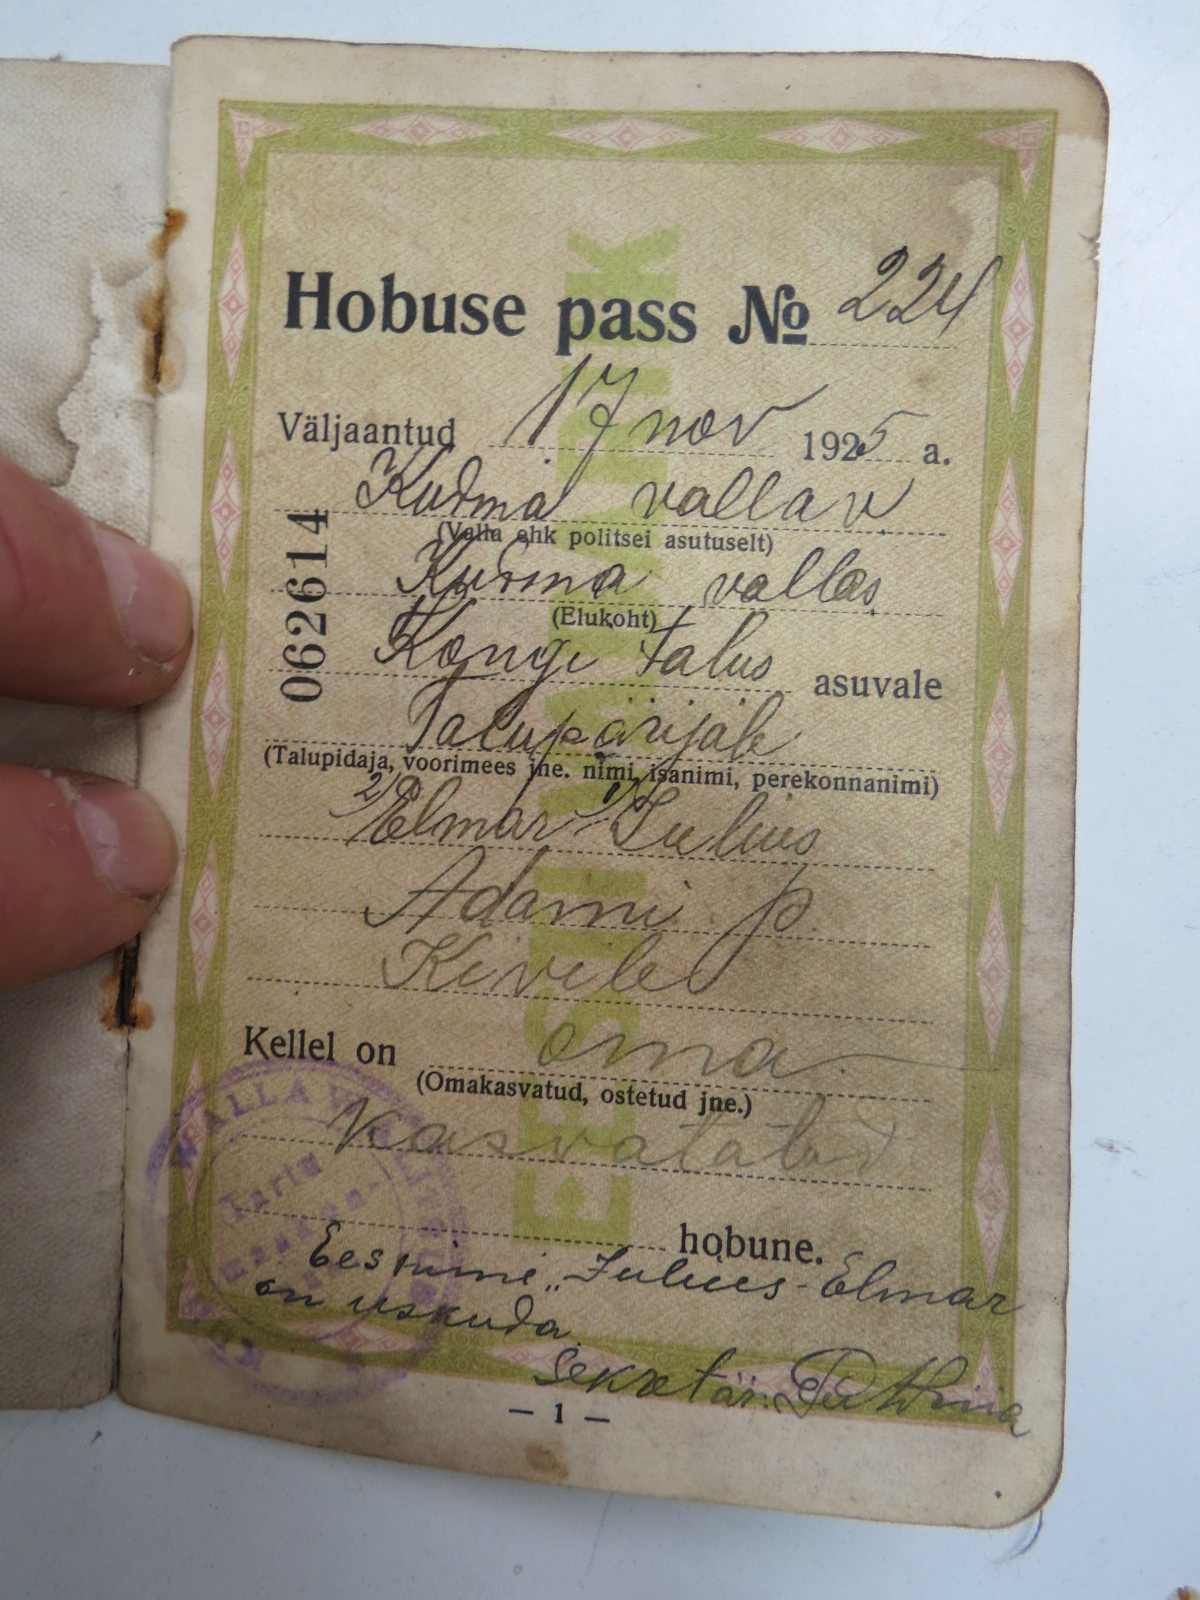 Hobuse pass № 224
Väljaantud 17 nov 1925 a.
Kudina valla v.
(Valla ehk politsei asutuselt)
Kudina vallas,
(Elukoht)
Kongi talus asuvale
062614
Talupärijale
(Talupidaja, voorimees jne. nimi, isanimi, perekonnanimi)
2/Elmar 1/Julius
Adami p.
Kivile
Kellel on oma-
(Omakasvatud, ostetud jne.)
kasvatatud
hobune.
Eesnimi „Julius-Elmar
on uskuda.
Sekretär:
EESTI VABARIIK
WALLA
Tartu
— 1 —